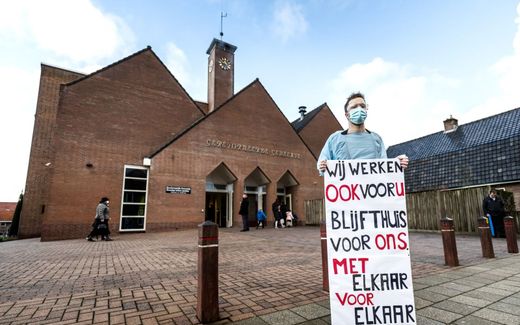 GEREFORMEERDE GEMEENTE
WIJ WERKEN
OOK VOOR U
BLIJFT HUIS
VOOR ONS.
MET
ELKAAR
VOOR
ELKAAR